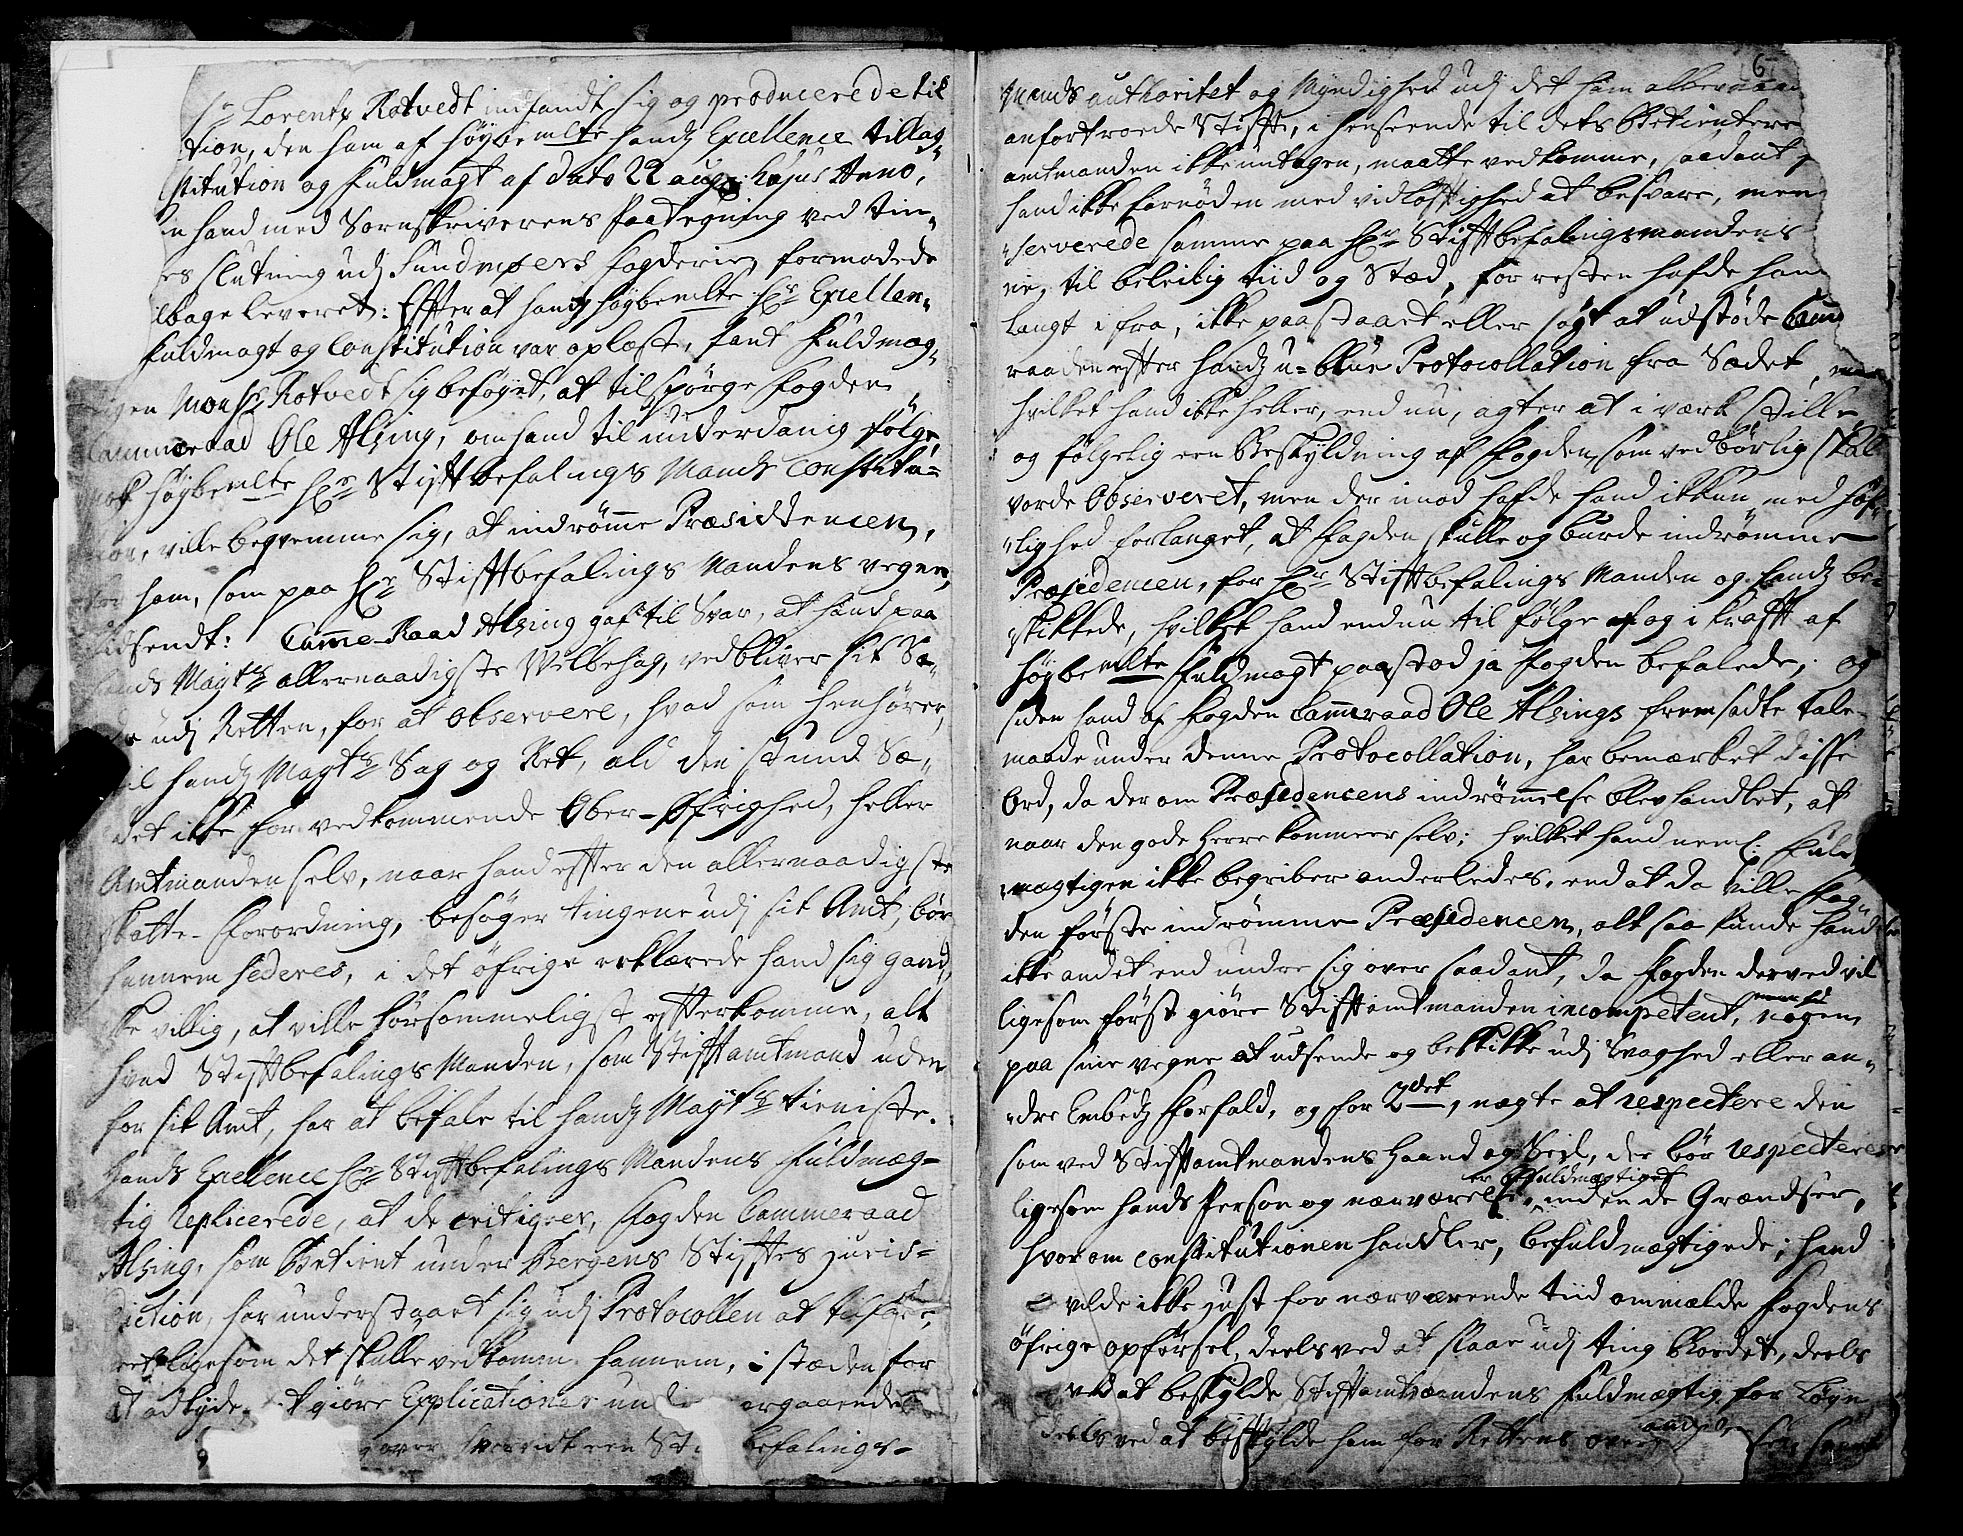 Sr Lorentz Rotvedt indfandt sig og producerede til
tion, den ham af høÿbemlte hands Excellence tillag¬
stitution og Fuldmagt af dato 22 aug: hujus Anno,
hand med Sornskriverens Paategning ved tin¬
es slutning udj Sundmøers fogderie, formodede
lbage leveret: Effter at hands høÿbemlte Hr Excellen¬
fuldmagt og Constitution var oplæst, fandt fuldmæg¬
tigen Monsr Rotvedt sig beføÿet, at tilspørge fogden
Cammeraad Ole Alsing, om hand til underdanig følge
høÿbemlte Hr Stifftbefalings Mands Constitu¬
tion, ville beqvemme sig, at indrömme Præsidtencen,
ham, som paa Hr Stifftbefalings Mandens vegne
udsendt: Camme-Raad Alsing gaf til Svar, at hand paa
hands Maÿts allernaadigste Velbehag, vedbliver sit Sæ¬
de udj Retten, for at observere, hvad som henhører,
til hands Maÿts Sag og Ret, ald den stund Sæ¬
det ikke for vedkommende Ober-Øfrighed, heller
Amtmanden selv, naar hand effter den allernaadigste
Skatte-forordning, besøger tingene udj sit Amt, bør
hannem sederes, i det öfrige erklærede hand sig gand¬
ske villig, at ville hörsommeligst effterkomme, alt
hvad Stifftbefalings Manden, som Stifftamtmand uden
for sit Amt, har at befale til hands Maÿts tieniste.
Hands Exellence Hr Stifftbefalings Mandens fuldmæg¬
tig replicerede, at de critiqver, fogden Cammeraad
Alsing, som Betient under Bergens Stifftes jurid¬
diction, har understaaet sig udj Protocollen at tilføre,
ret ligesom det skulle vedkomme hannem, i stæden for
at adlyde, at giøre Explicationer un argaaende
over hvorvidt een Sti befalings¬
6
Mands authoritet og Myndighed udj det ham allernaad
anfortroede Stifft, i henseende til dets Betientere
amtmanden ikke untagen, maatte vedkomme, saadant
hand ikke fornöden med vidløfftighed at besvare, men
serverede samme paa Hr Stifftbefalingsmandens
ne, til beleilig tiid og Stæd, for resten hafde han
langt i fra, ikke paastaaet eller søgt at udstøde Cam
raaden effter hands u-blue Protocollation fra Sædet,
hvilket hand ikke heller, end nu, agter at i værk stille
og følgelig een Beskyldning af fogden, som ved börlig skal
vorde Observeret, men der imod hafde hand ikkun med höf¬
lighed forlanget, at fogden skulle og burde indrömme
Præsidencen, for Hr Stifftbefalings Manden og hands be¬
skikkede, hvilket hand endnu til følge af og i krafft af
høÿbemlte fuldmagt paastod ja fogden befalede; og
siden hand af fogden Cammeraad Ole Alsings fremsadte tale
maade under denne Protocollation, har bemærket disse
Ord, da der om Præsidencens indrömmelse blev handlet, at
naar den gode Herre kommer selv; hvilket hand neml: fuld
mægtigen ikke begriber anderledes, end at da ville fog¬
den förste indrömme Præsidencen, alt saa kunde hand
ikke andet end undre sig over saadant, da fogden derved vil
ligesom först giöre Stifftamtmanden incompetent, nogen
paa sine vegne at udsende og beskikke udj svaghed eller an¬
dre Embeds forfald, og for 2det, nægte at respectere den
som ved Stifftamtmandens Haand og Seil, der bør respecteres
ligesom hands Person og nærværelse, er befuldmægtiget inden de Grændser,
hvorom constitutionen handler, befuldmægtigede; hand
vilde ikke just for nærværende tiid ommælde fogdens
öfrige opförsel, deels ved at slaae udj ting Bordet, deels
ved at beskylde Stifftamtmandens fuldmægtig for Løgn
deels ved at beskylde ham for Rettens over